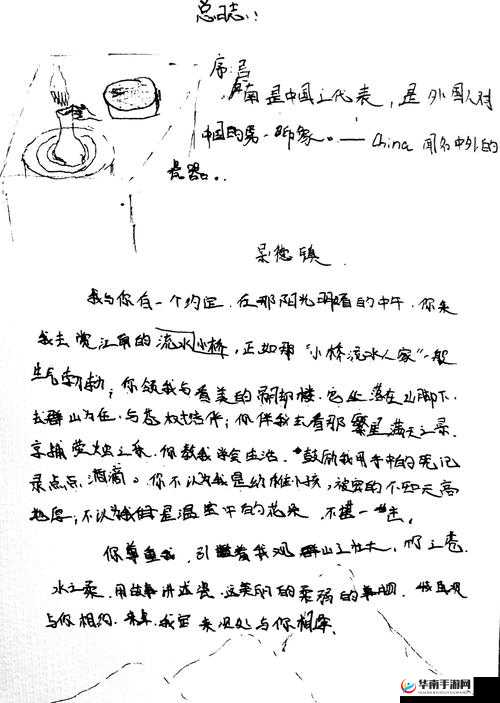 总日志：
序言
是中国之代表，是外国人对
中国的第一印象。——China 闻名中外的
瓷器。
景德镇
我与你有一个约定，在那阳光明媚的中午，你来
我去赏江南的流水小桥，正如那“小桥流水人家”一般
生气勃勃；你领我与看美的阁楼，它坐落在山脚下
去群山为伍，与花相伴；你伴我去看那繁星满天之景
你教我学会生活，鼓励我用手中的笔记
录点点滴滴。你不认为我是幼稚小孩，被宠的不知天高
地厚；不认为我是温室中的花朵，不堪一击。
你尊重我，引我观群山之壮大，
水之柔，用故事讲述瓷
与你相约，来年，我定来此处与你相
华南手游网